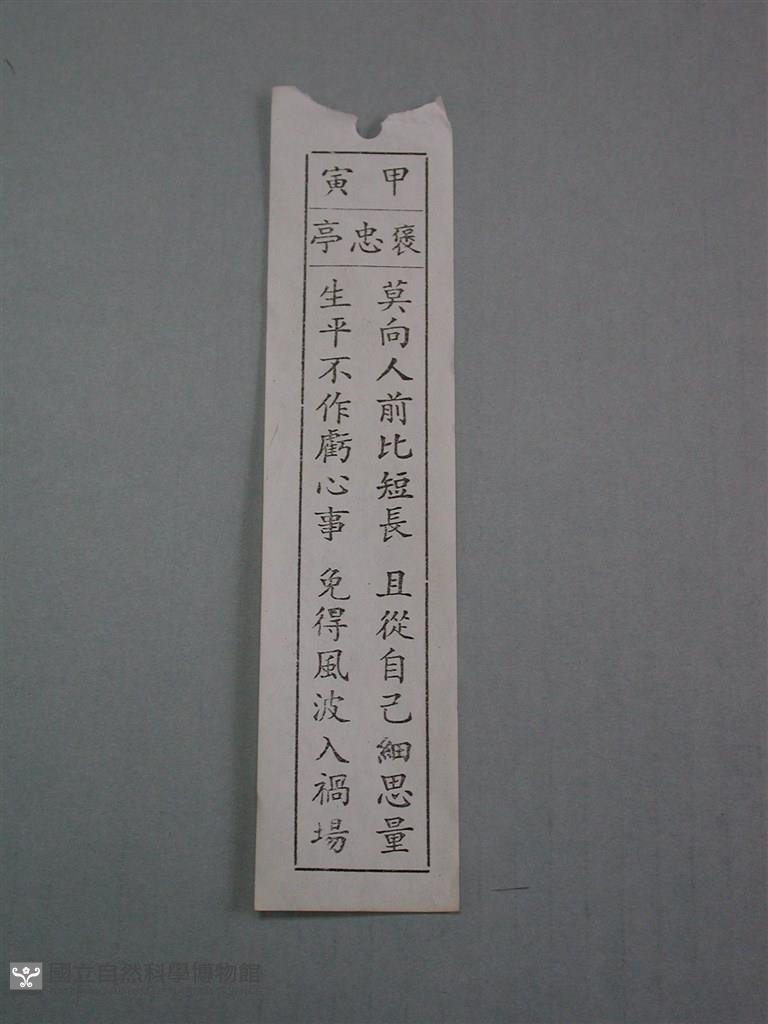 甲寅
褒忠亭
莫向人前比短長 且從自己細思量
生平不作虧心事 免得風波入禍場
國立自然科學博物館